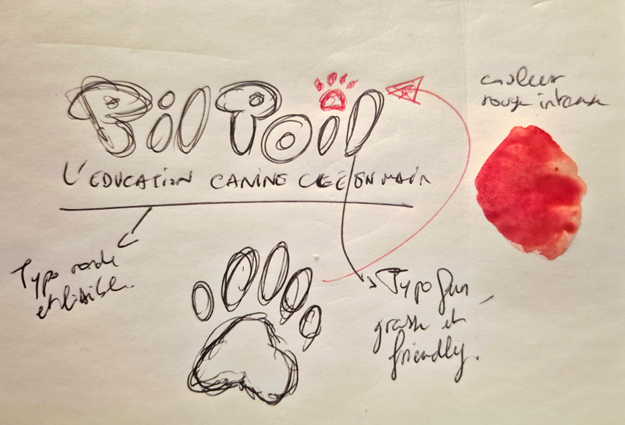 Pil Poil
L'EDUCATION CANINE CLÉ EN MAIN
couleur
rouge intense
Typo ronde
et lisible.
Typo fun
grasse et
friendly.